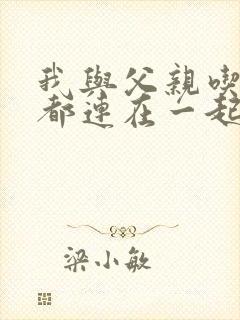 我與父親喫
都連在一起
梁小敏